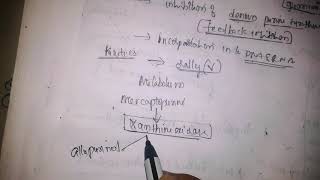 inhibition of denovo purine synthesis
(Feedback inhibition)
→ Incorporation into DNA & RNA
Kinetics → orally (✓)
Metabolism
Mercaptopurine
Xanthine oxidase
allopurinol